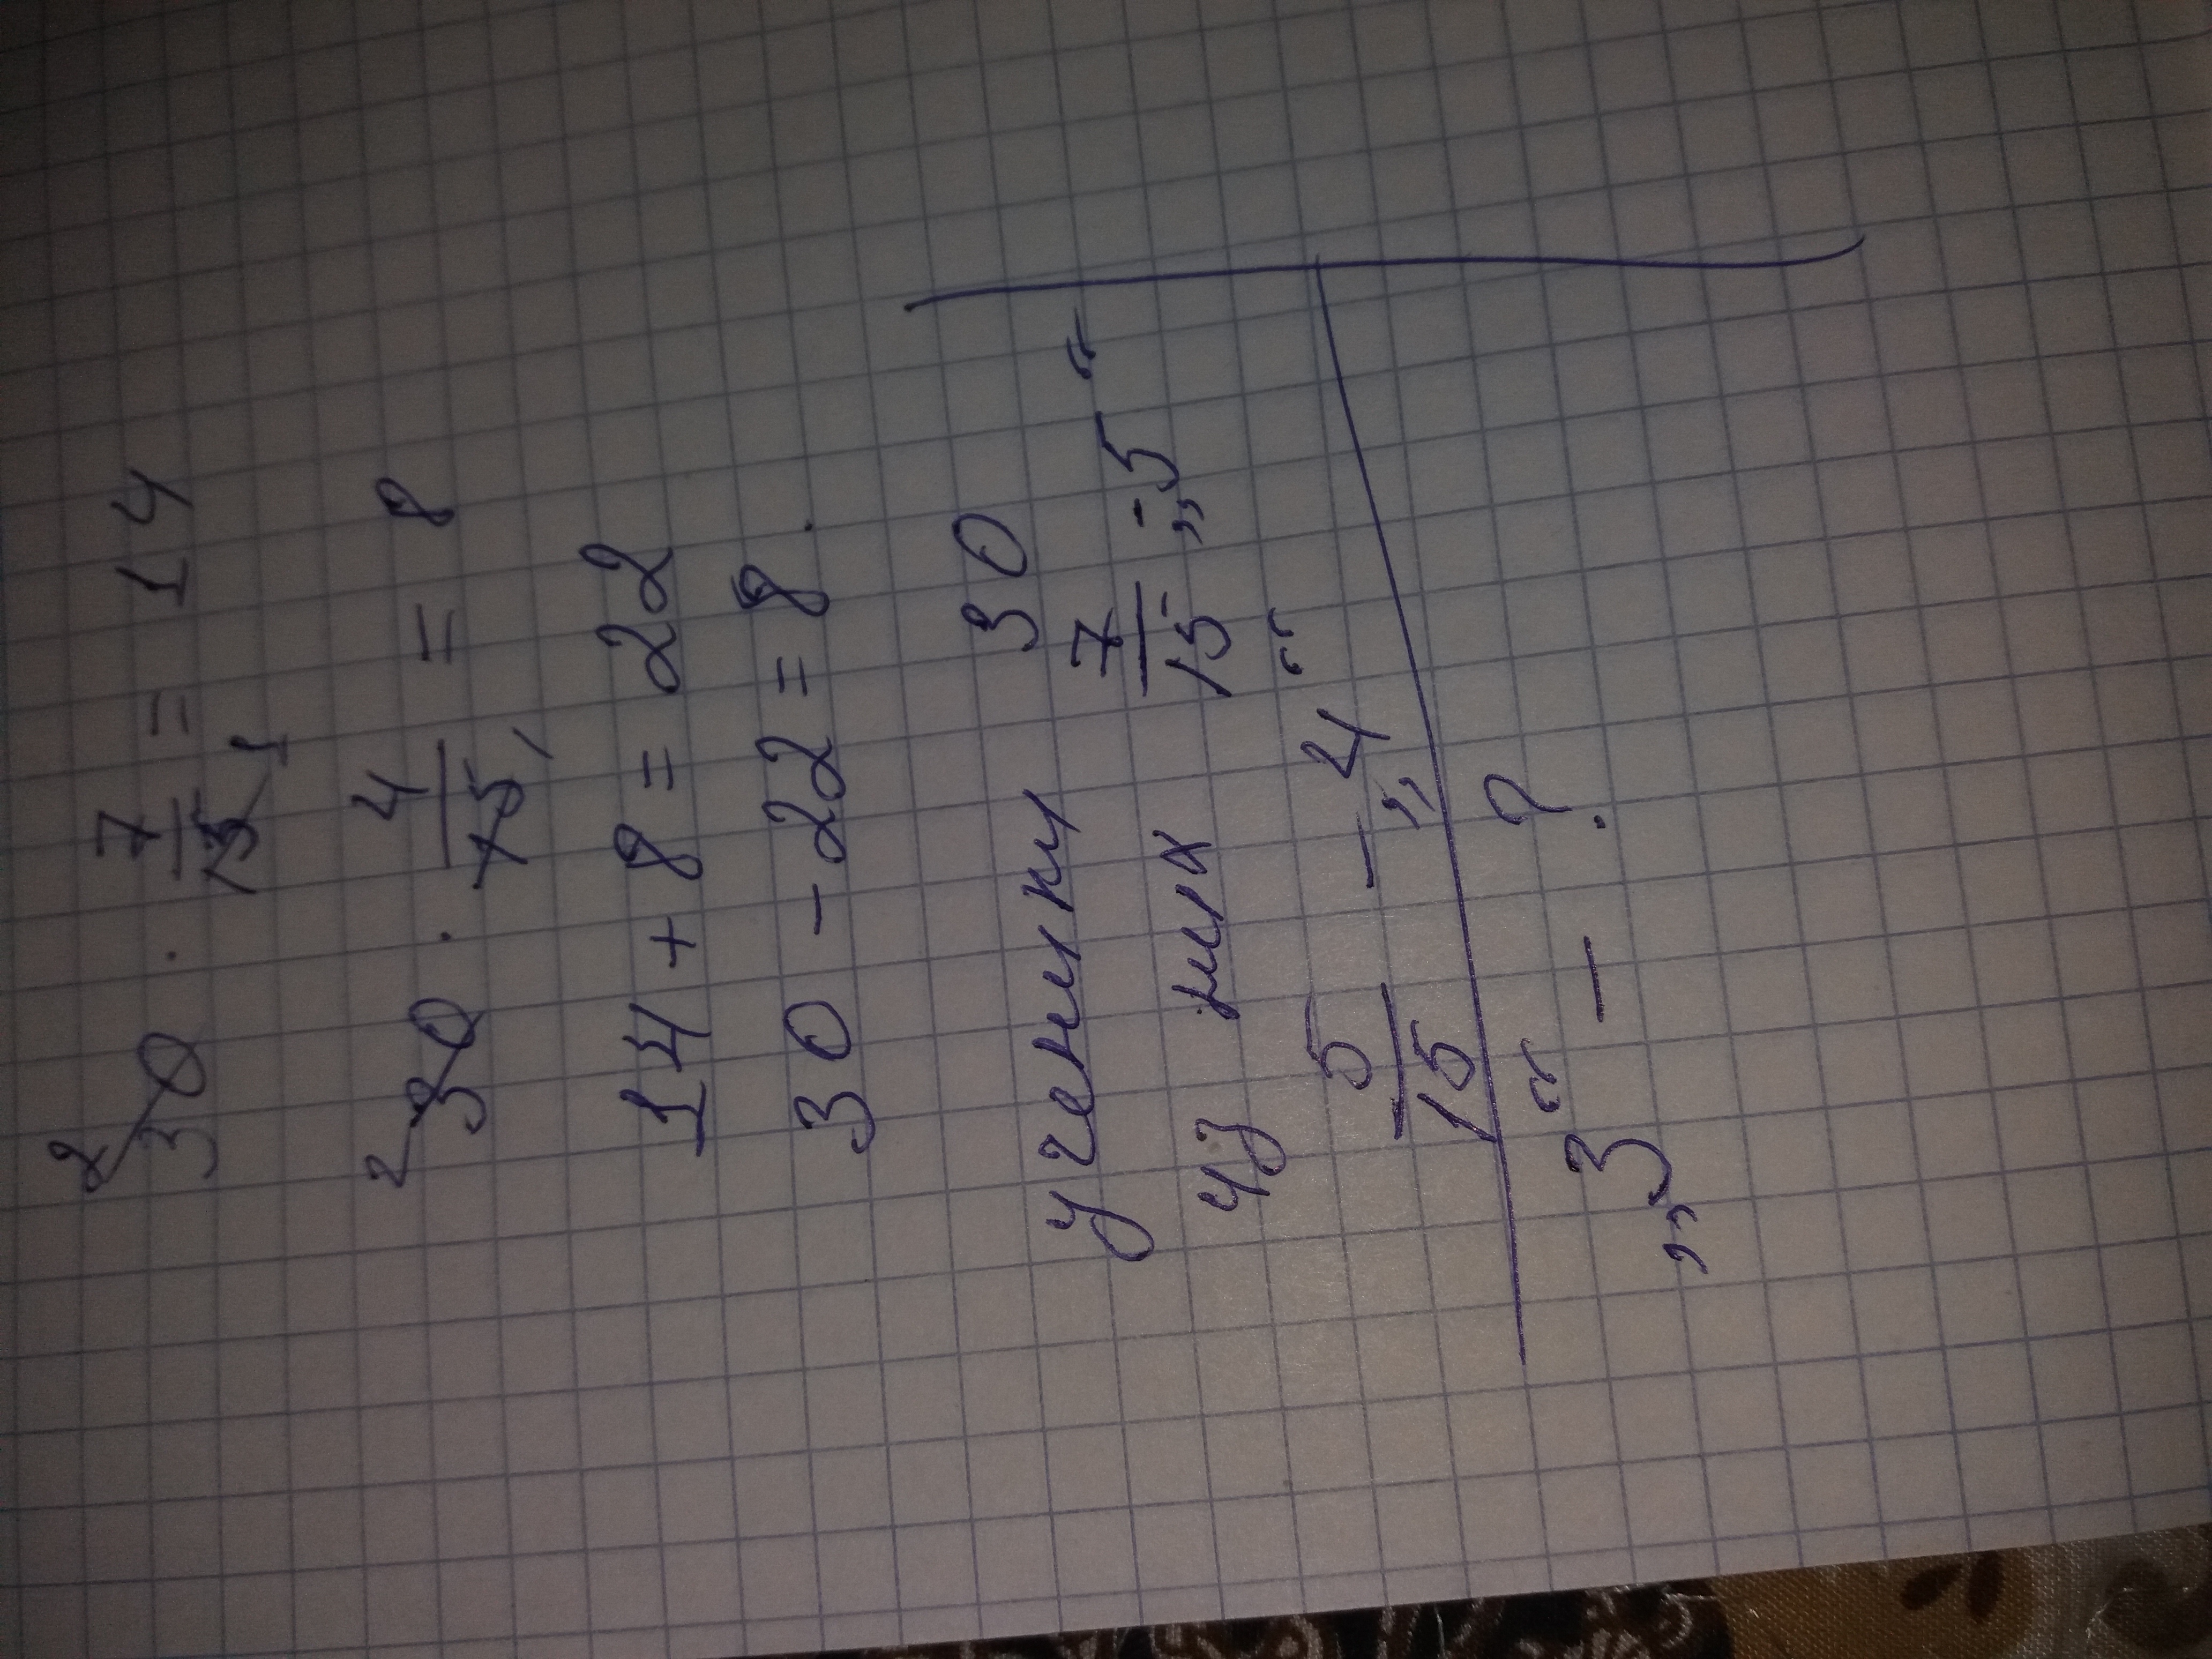 30 · 7/15 = 14
30 · 4/15 = 8
14 + 8 = 22
30 - 22 = 8.
ученики 30
из них 7/15 - „5“
5/15 - „4“
„3“ - ?